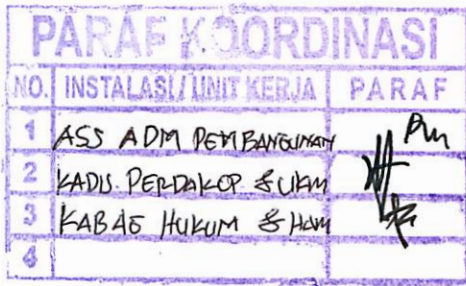 PARAF KOORDINASI
NO. INSTALASI / UNIT KERJA PARAF
1 ASS ADM PEMBANGUNAN
2 KADIS. PERDAKOP & UKM
3 KABAG HUKUM & HAM
4